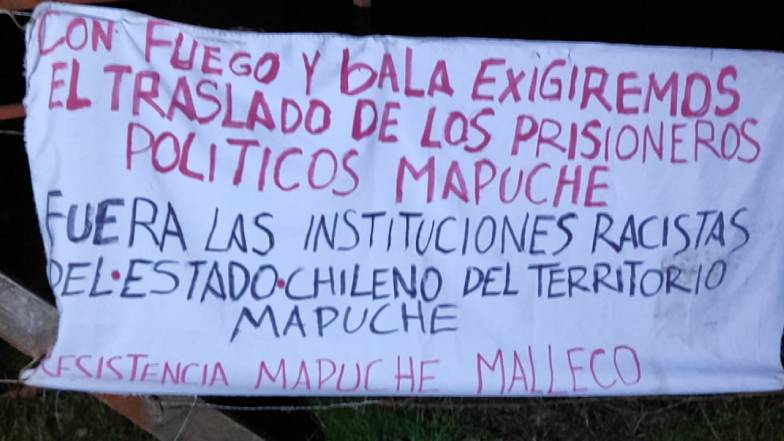 CON FUEGO Y BALA EXIGIREMOS
EL TRASLADO DE LOS PRISIONEROS
POLITICOS MAPUCHE
FUERA LAS INSTITUCIONES RACISTAS
DEL•ESTADO•CHILENO DEL TERRITORIO
MAPUCHE
RESISTENCIA MAPUCHE MALLECO